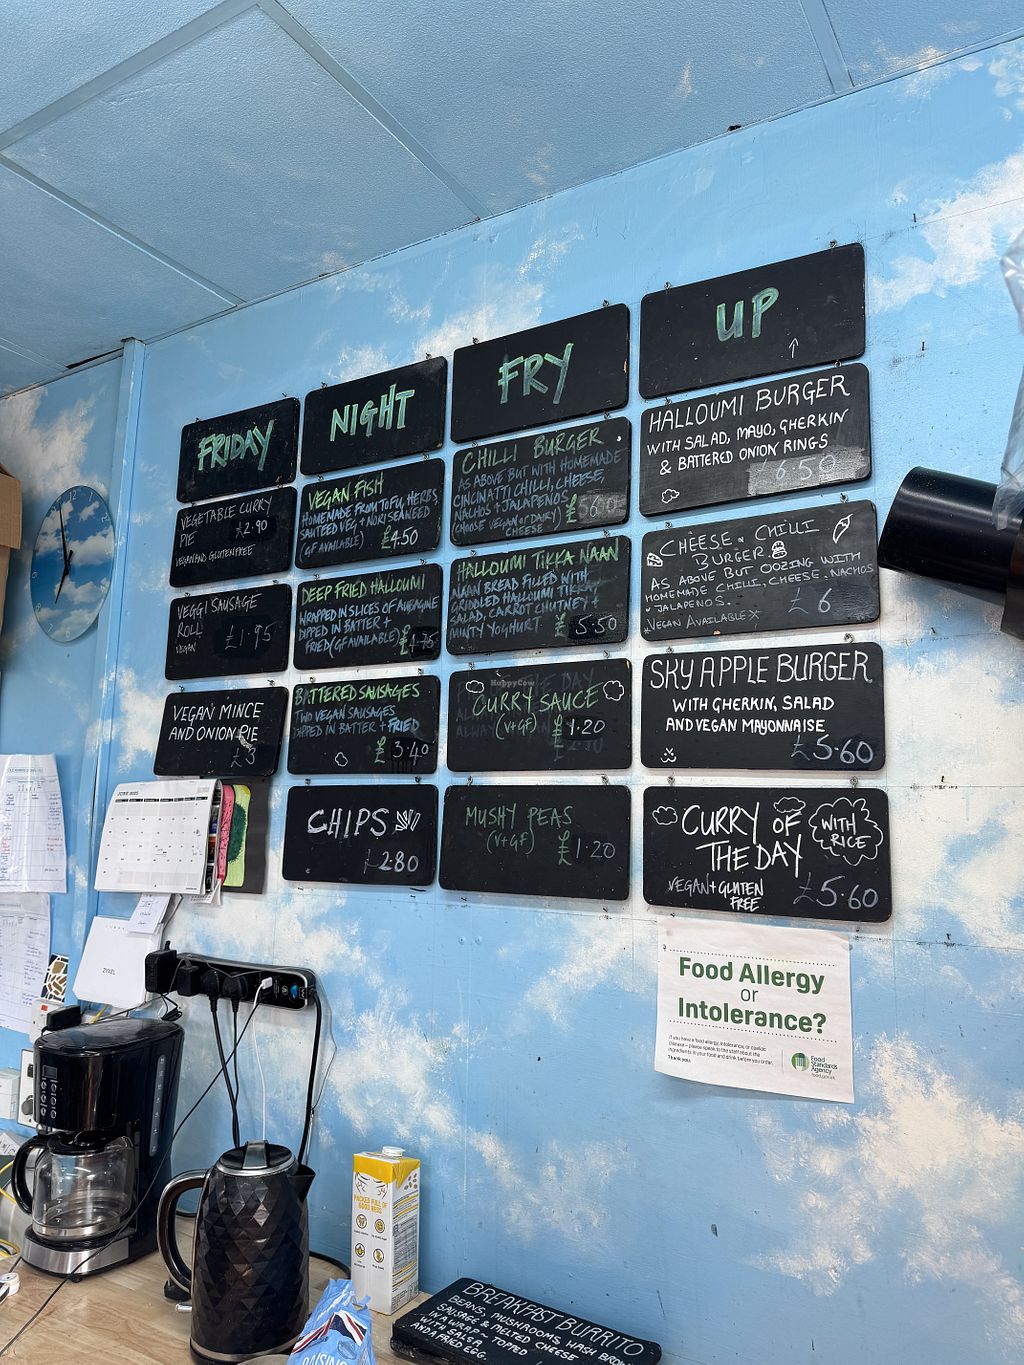 FRIDAY
NIGHT
FRY
UP
VEGETABLE CURRY
PIE £2.90
VEGAN AND GLUTEN FREE
VEGGI SAUSAGE
ROLL
VEGAN £1.95
VEGAN MINCE
AND ONION PIE
£3
VEGAN FISH
HOMEMADE FROM TOFU, HERBS,
SAUTEED VEG + NORI SEAWEED
(GF AVAILABLE) £4.50
DEEP FRIED HALLOUMI
WRAPPED IN SLICES OF AUBAGINE
DIPPED IN BATTER +
FRIED (GF AVAILABLE) £4.75
BATTERED SAUSAGES
TWO VEGAN SAUSAGES
DIPPED IN BATTER + FRIED
£3.40
CHIPS
£2.80
CHILLI BURGER
AS ABOVE BUT WITH HOMEMADE
CINCINATTI CHILLI, CHEESE,
NACHOS + JALAPENOS
(CHOOSE VEGAN OR DAIRY)
CHEESE
HALLOUMI TIKKA NAAN
NAAN BREAD FILLED WITH
GRIDDLED HALLOUMI TIKKA,
SALAD, CARROT CHUTNEY +
MINTY YOGHURT. 5.50
HappyCow
CURRY SAUCE
(V+GF) £1.20
MUSHY PEAS
(V+GF) £1.20
HALLOUMI BURGER
WITH SALAD, MAYO, GHERKIN
& BATTERED ONION RINGS
£6.50
CHEESE & CHILLI
BURGER
AS ABOVE BUT OOZING WITH
HOMEMADE CHILLI, CHEESE, NACHOS
+ JALAPENOS. £6
VEGAN AVAILABLE X
SKY APPLE BURGER
WITH GHERKIN, SALAD
AND VEGAN MAYONNAISE
£5.60
CURRY OF
THE DAY
WITH
RICE
VEGAN + GLUTEN
FREE £5.60
Food Allergy
or
Intolerance?
If you have a food allergy, intolerance, or coeliac
disease – please speak to the staff about the
ingredients in your food and drink before you order.
Thank you.
Food
Standards
Agency
food.gov.uk
ZYXEL
PACKED FULL OF
GOOD BEES
BREAKFAST BURRITO
BEANS, MUSHROOMS, HASH BROWN
SAUSAGE & MELTED CHEESE
IN A WRAP ~ TOPPED
WITH SALSA
AND A FRIED EGG.